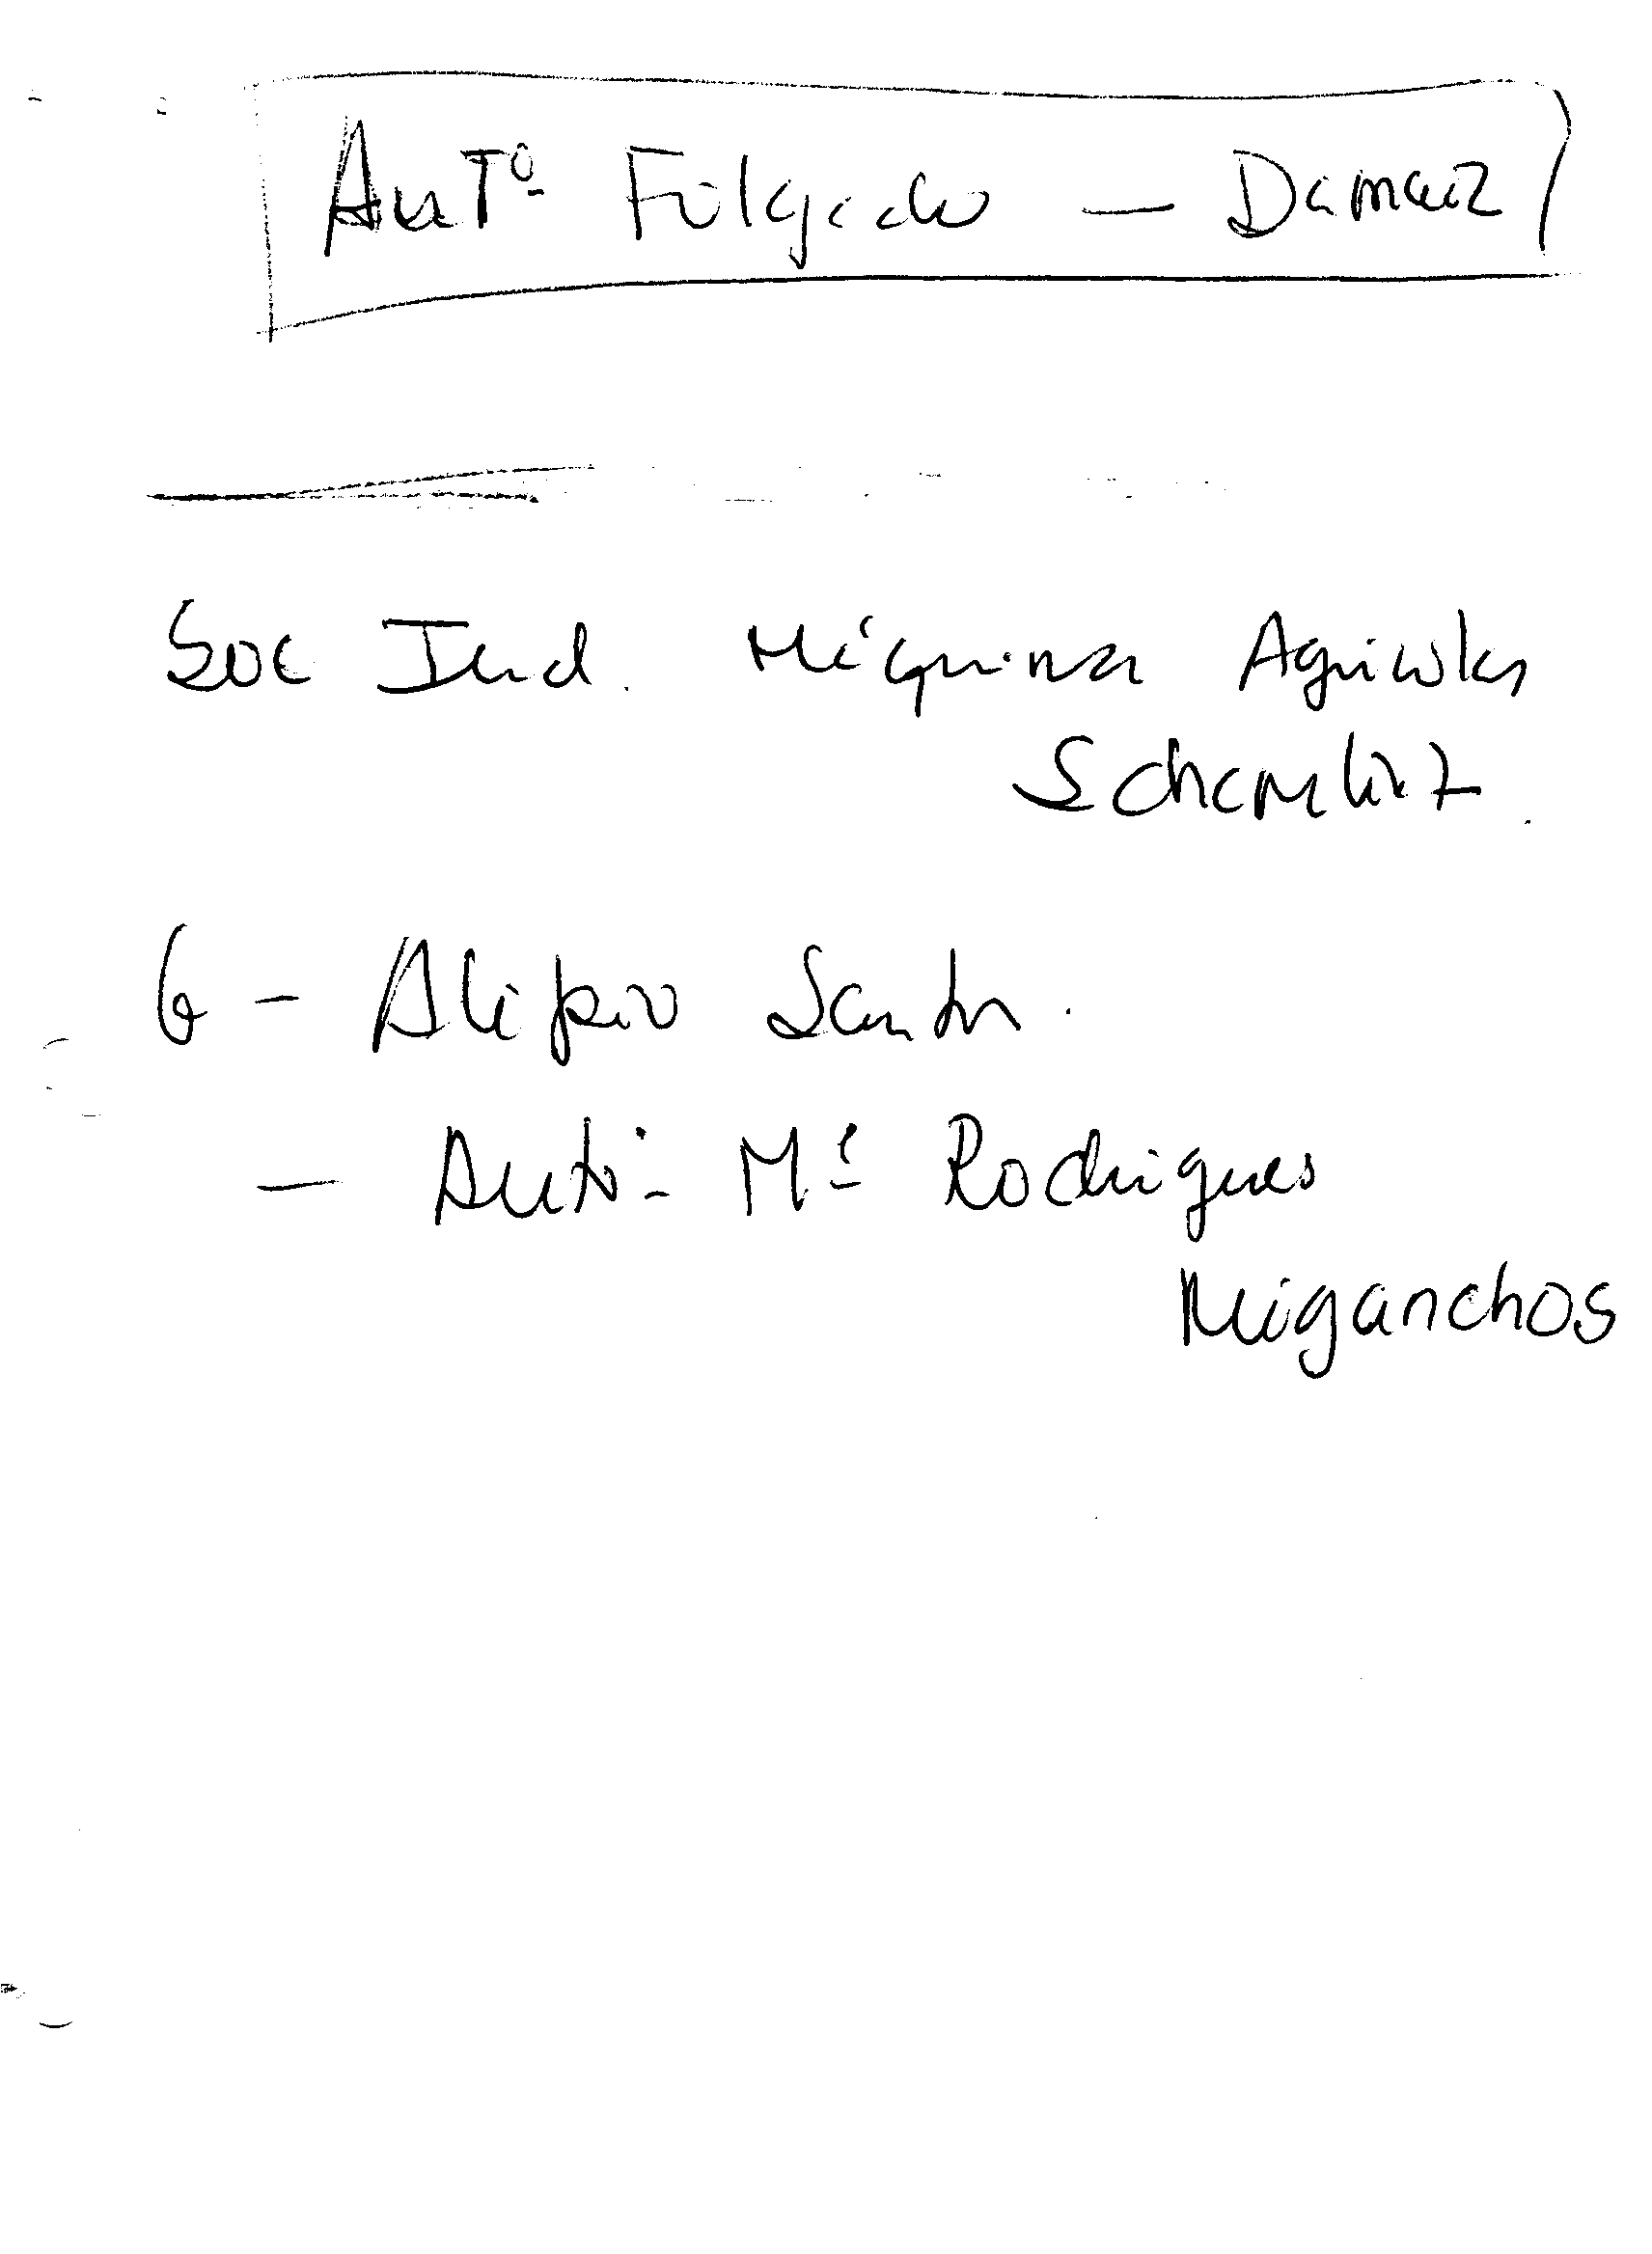 Antº Folgado — Damaiz
Soc Ind. Máquinas Agricolas
6 — Alipio Santos.
— Antº Mª Rodrigues
Miganchos